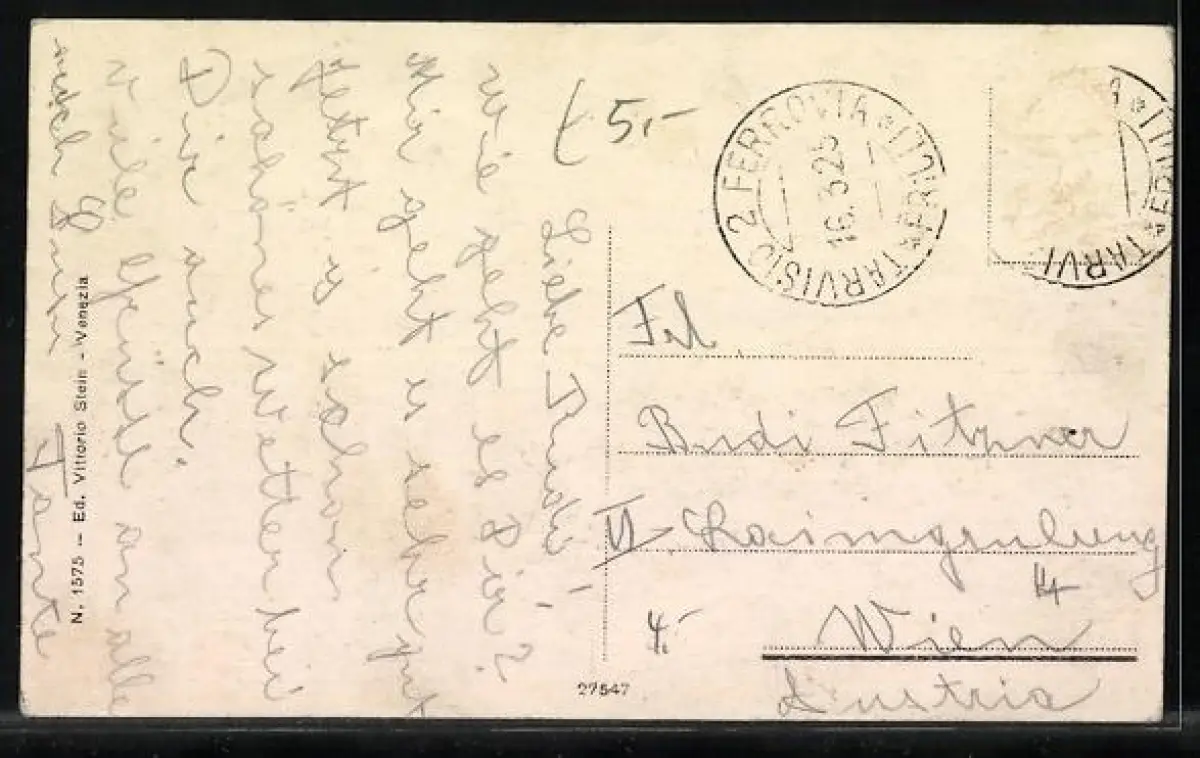 Liebe Trudi!
Wie geht es Dir?
Mir geht es sehr gut
jetzt is schon
schönes Wetter bei
Dir auch.
Viele Grüße an alle
Tante
5.-
2 FERROVIA * ITOIA
TARVISIO
16.3.25
TARVI
Frl
Fitzner
VI
4
4.-
Wien
Austria
27547
N. 1575 — Ed. Vittorio Stein - Venezia